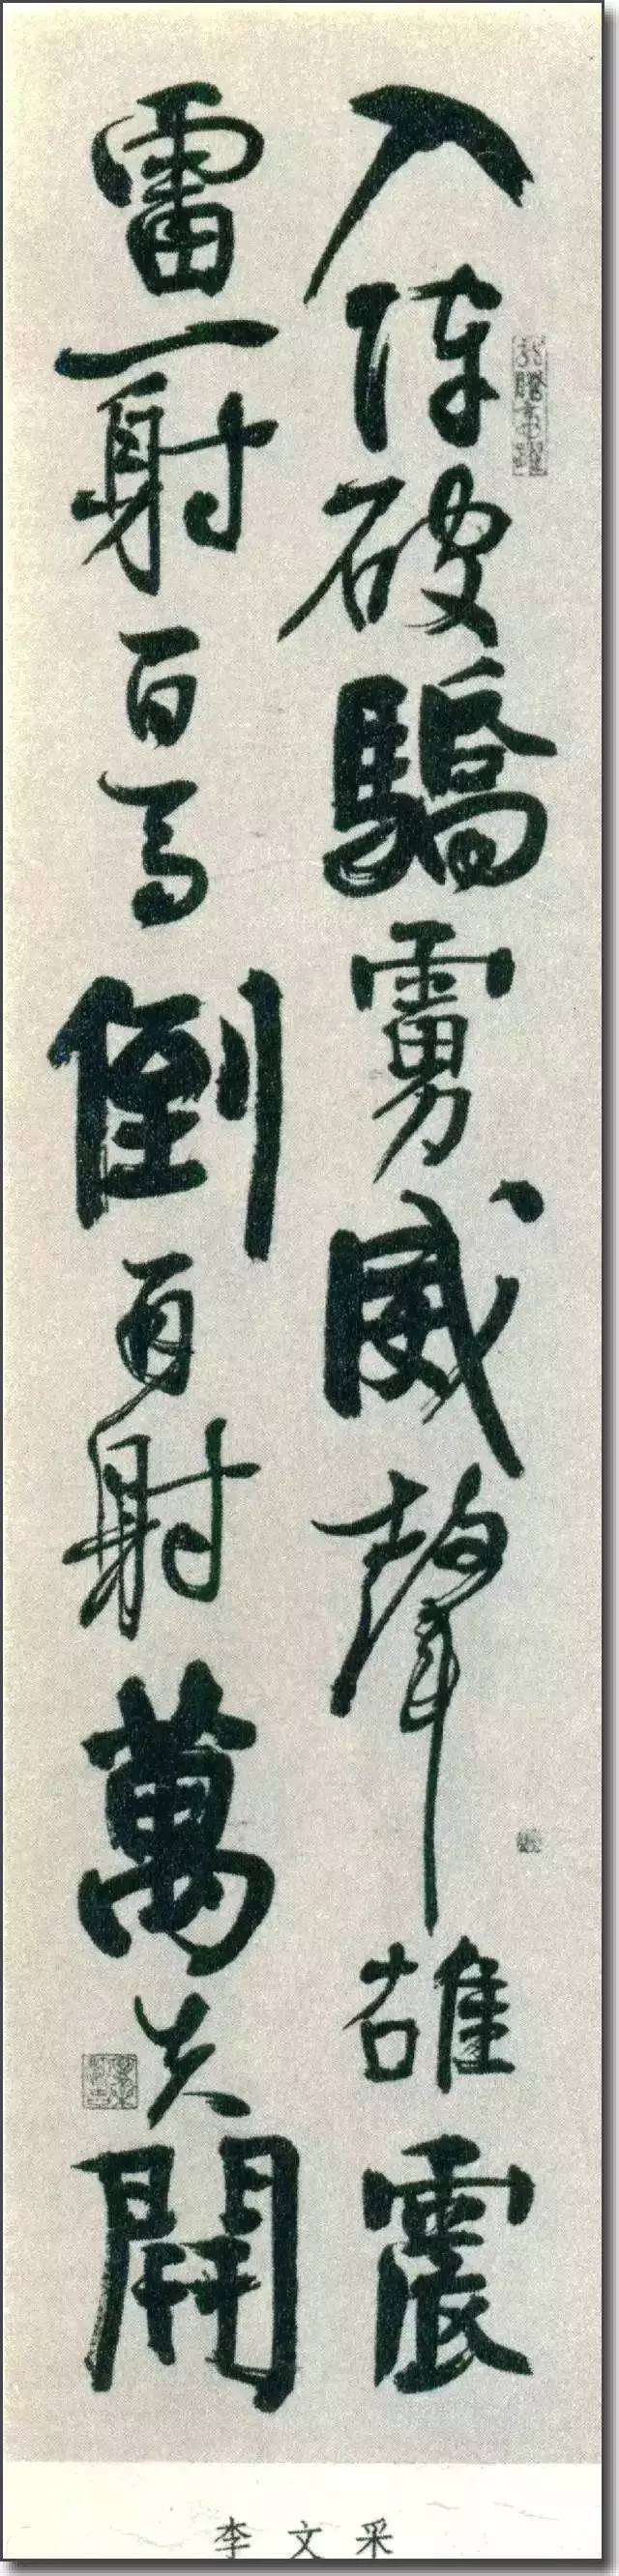 入陣破驕虜威聲雄震
雷一射百馬倒再射萬夫開
李文采